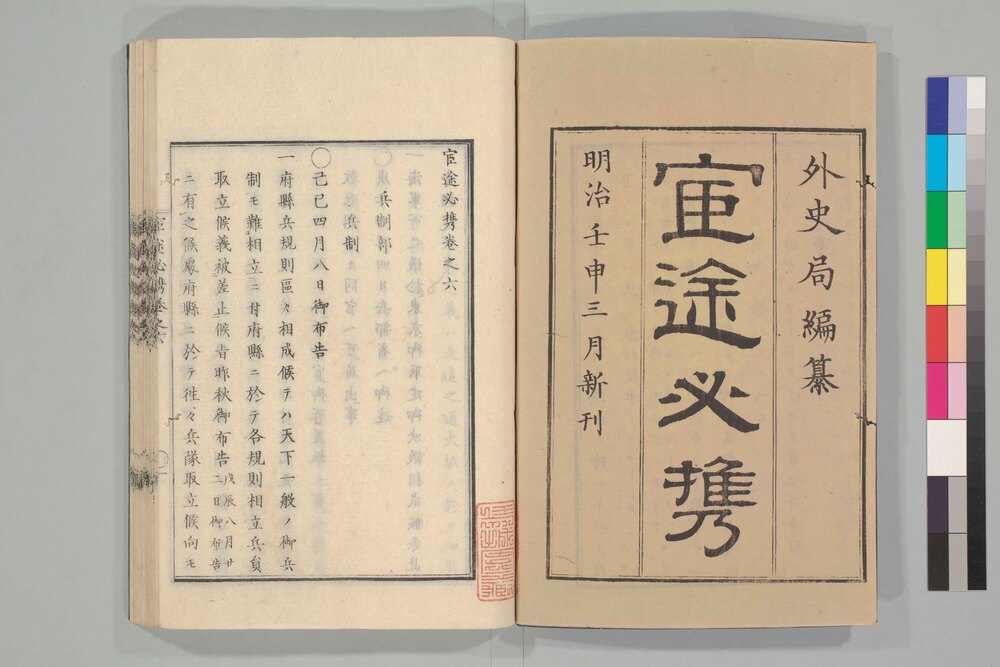 外史局編纂
宦途必携
明治壬申三月新刊
宦途必携卷之六
兵制部
兵制
〇己巳四月八日御布告
一府縣兵規則區々相成候テハ天下一般ノ御兵
制モ難相立ニ付府縣ニ於テ各規則相立兵員
取立候義被差止候者昨秋御布告戊辰八月廿二日御布告
ニ有之候處府縣ニ於テ徃々兵隊取立候向モ
宦途必携卷之六